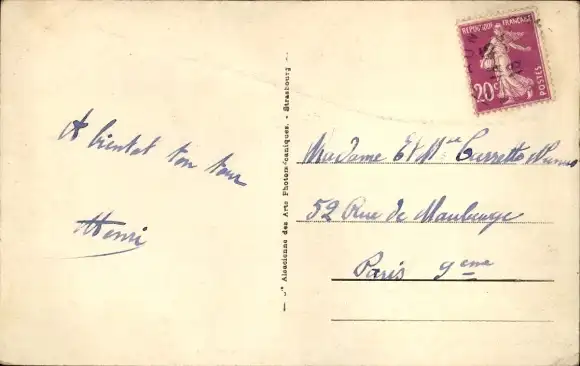 A bientot ton tour
Henri
Cie Alsacienne des Arts Photomécaniques. - Strasbourg
REPUBLIQUE FRANÇAISE
20c
POSTES
Madame Et Mr
52 Rue de Maubeuge
Paris 9eme